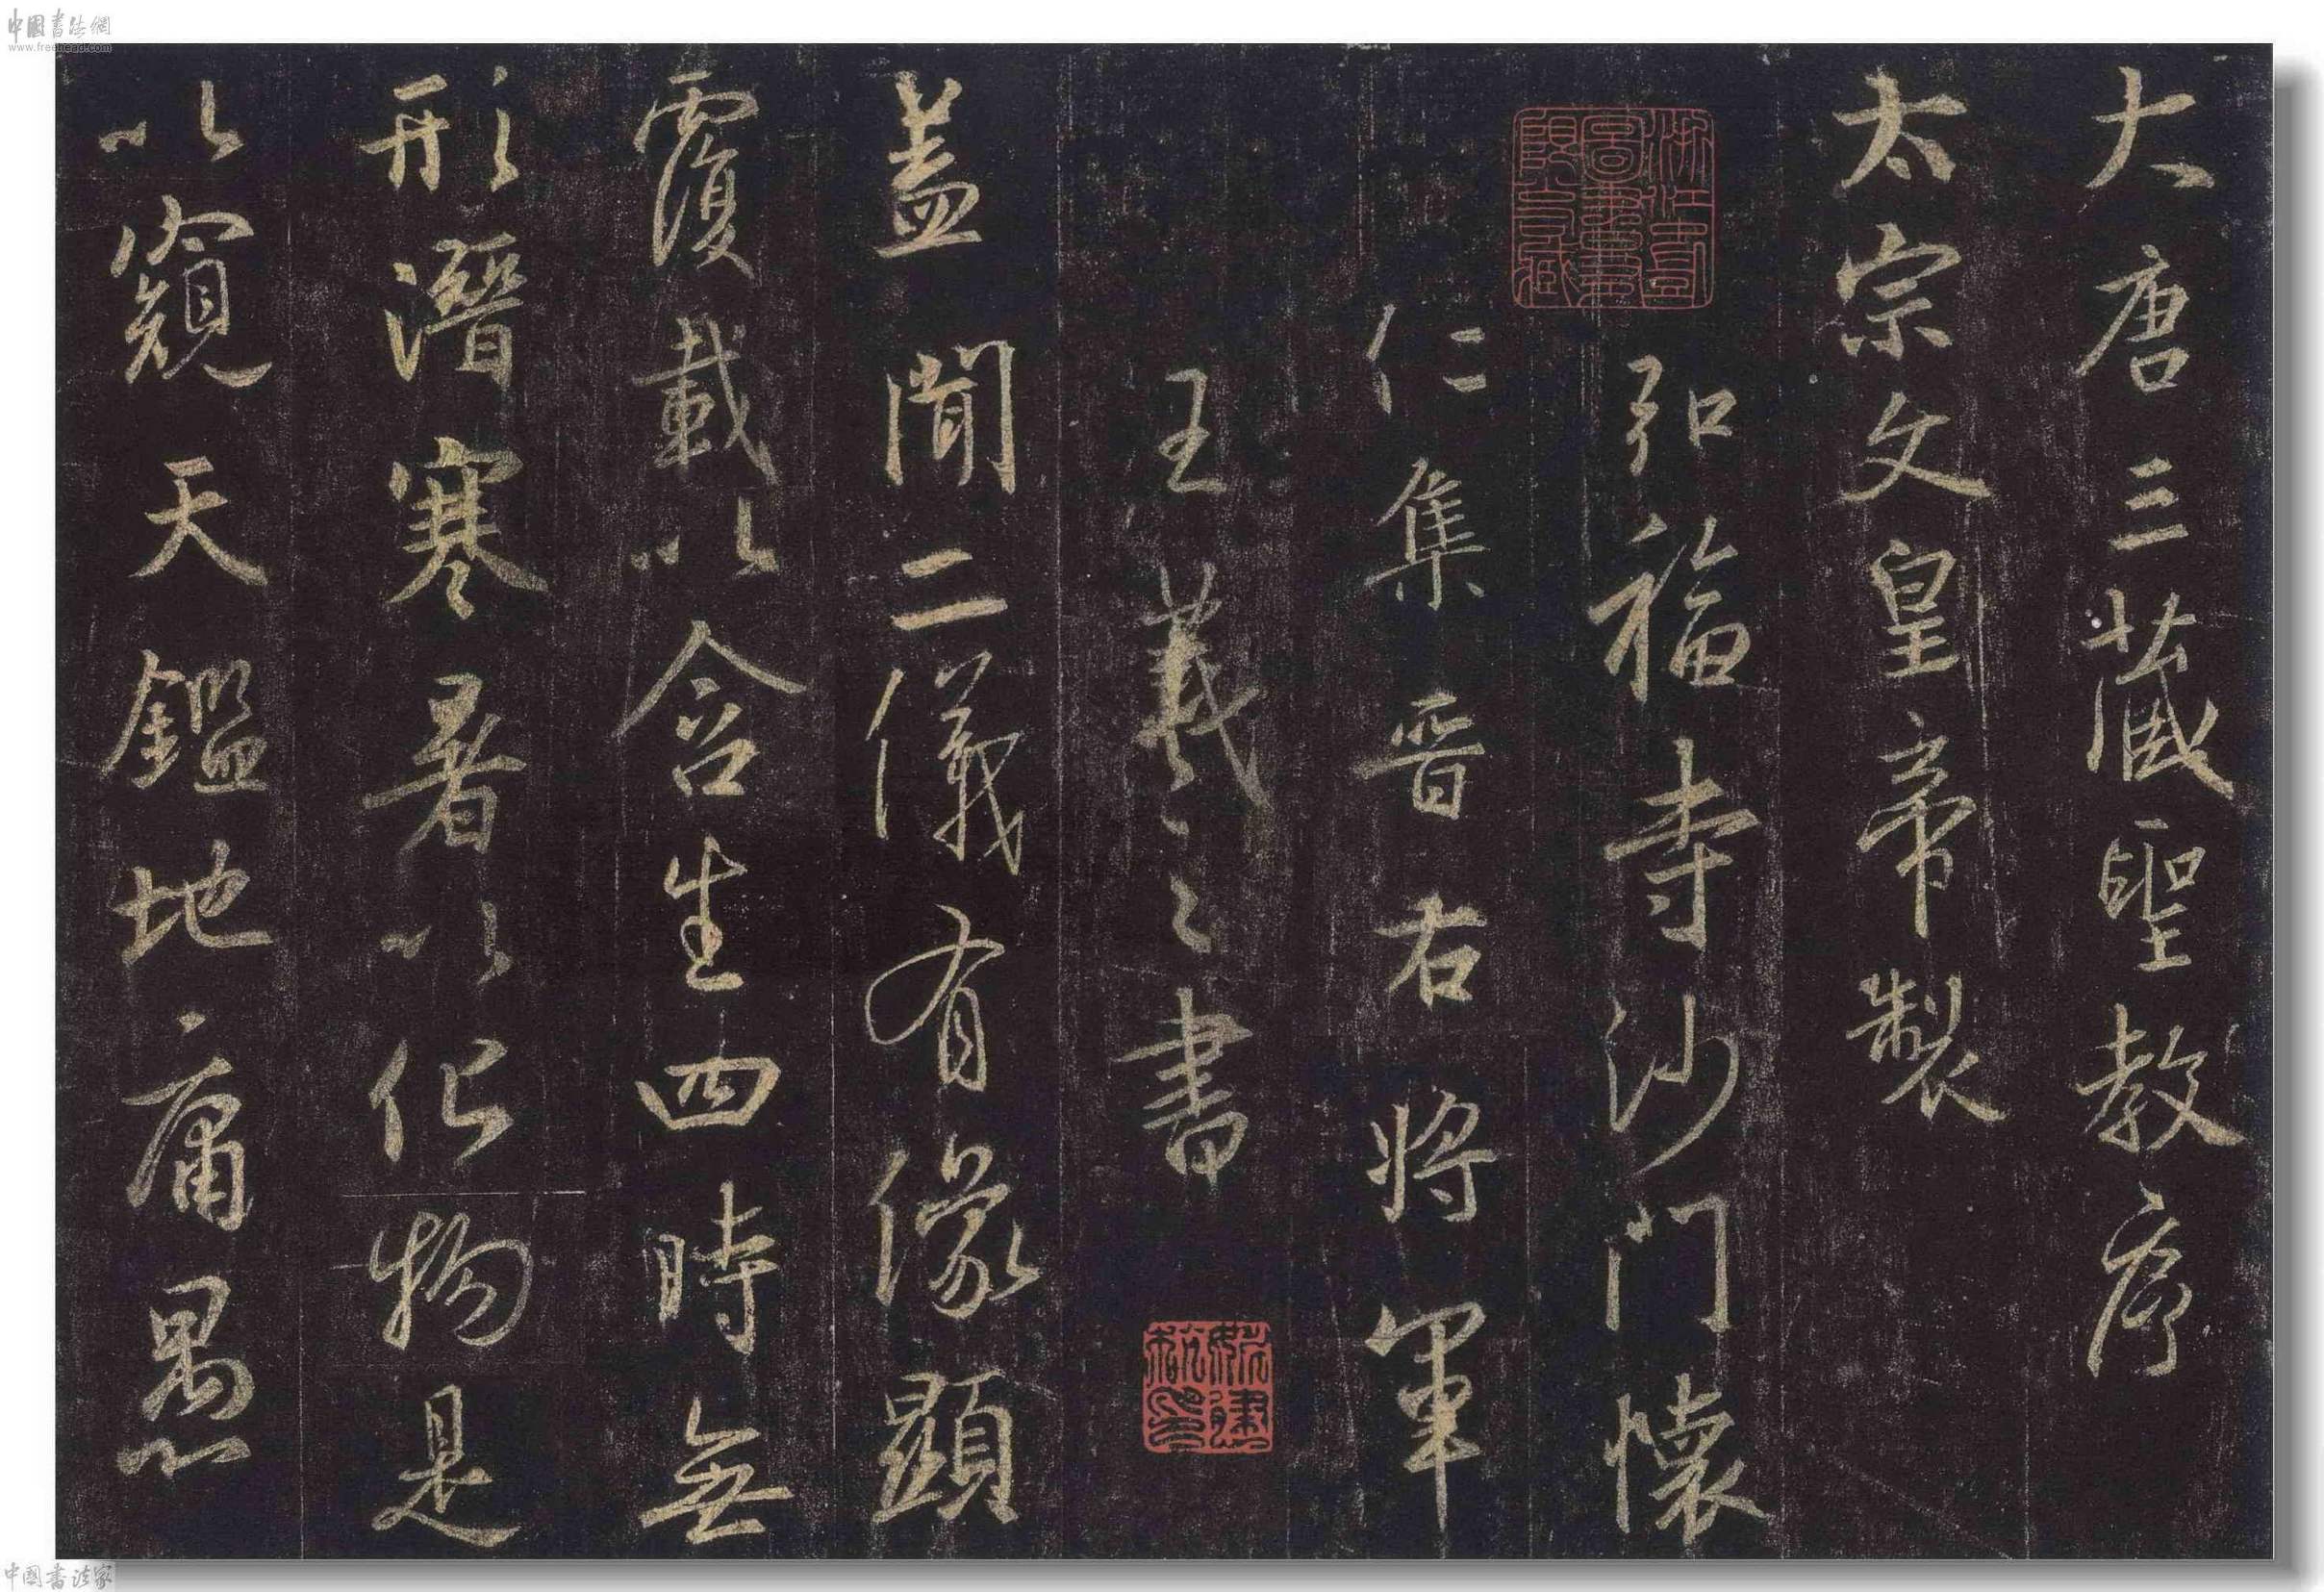 中國書法網
www.freehead.com
大唐三藏聖教序
太宗文皇帝製
弘福寺沙門懷
仁集晉右將軍
王羲之書
蓋聞二儀有像顯
覆載以含生四時無
形潛寒暑以化物是
以窺天鑑地庸愚
中國書法家